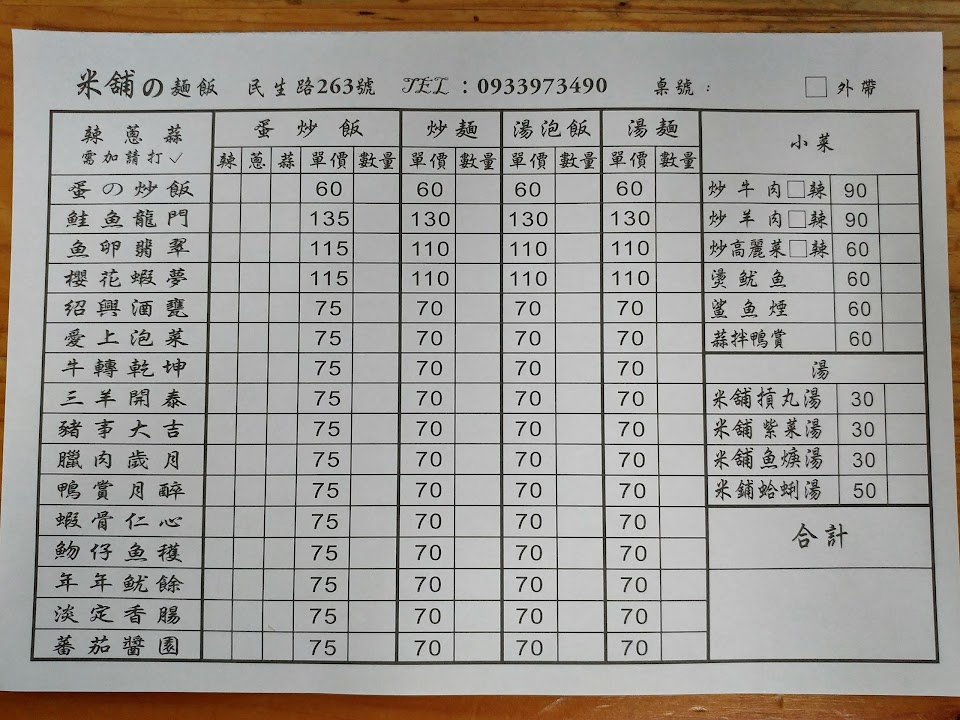 米舖の麵飯 民生路263號 TEL：0933973490 桌號： □外帶
辣蔥蒜 蛋炒飯 炒麵 湯泡飯 湯麵 小菜
需加請打✓ 辣 蔥 蒜 單價 數量 單價 數量 單價 數量 單價 數量
蛋の炒飯 60 60 60 60 炒牛肉□辣 90
鮭魚龍門 135 130 130 130 炒羊肉□辣 90
魚卵翡翠 115 110 110 110 炒高麗菜□辣 60
櫻花蝦夢 115 110 110 110 燙魷魚 60
紹興酒甕 75 70 70 70 鯊魚煙 60
愛上泡菜 75 70 70 70 蒜拌鴨賞 60
牛轉乾坤 75 70 70 70 湯
三羊開泰 75 70 70 70 米舖摃丸湯 30
豬事大吉 75 70 70 70 米舖紫菜湯 30
臘肉歲月 75 70 70 70 米舖魚焿湯 30
鴨賞月醉 75 70 70 70 米鋪蛤蜊湯 50
蝦骨仁心 75 70 70 70 合計
魩仔魚穫 75 70 70 70
年年魷餘 75 70 70 70
淡定香腸 75 70 70 70
蕃茄醬園 75 70 70 70